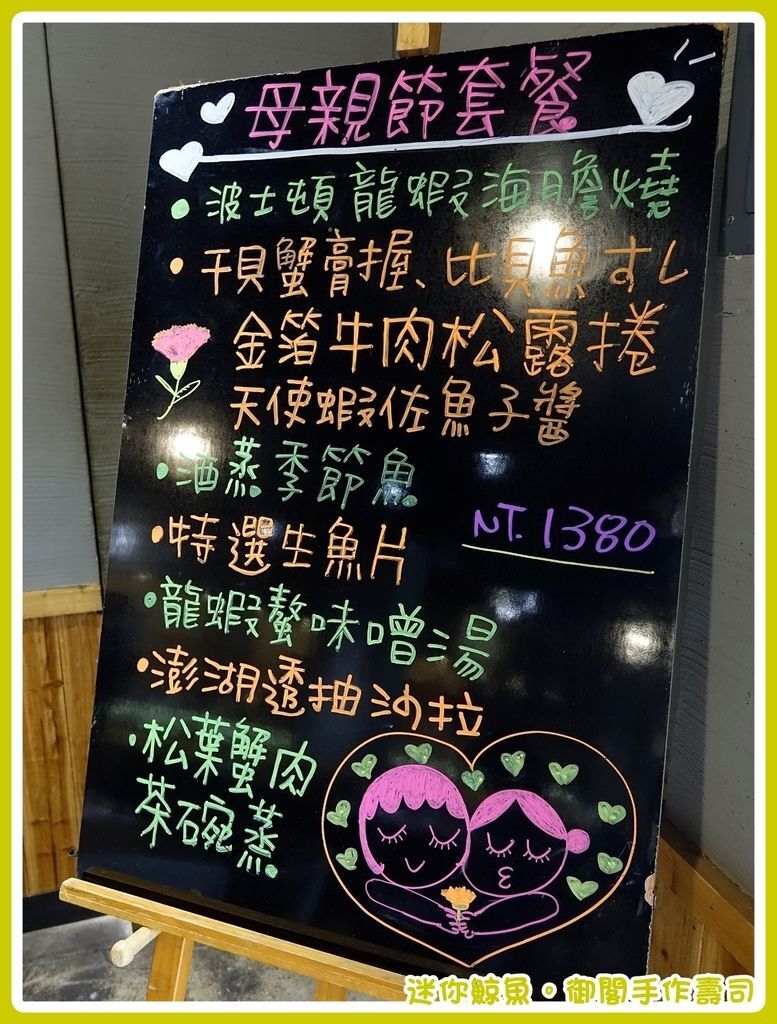 母親節套餐
• 波士頓龍蝦海膽燒
• 干貝蟹膏握、比目魚すし
金箔牛肉松露捲
天使蝦佐魚子醬
• 酒蒸季節魚
NT. 1380
• 特選生魚片
• 龍蝦螯味噌湯
• 澎湖透抽沙拉
• 松葉蟹肉
茶碗蒸
迷你鯨魚。御閣手作壽司